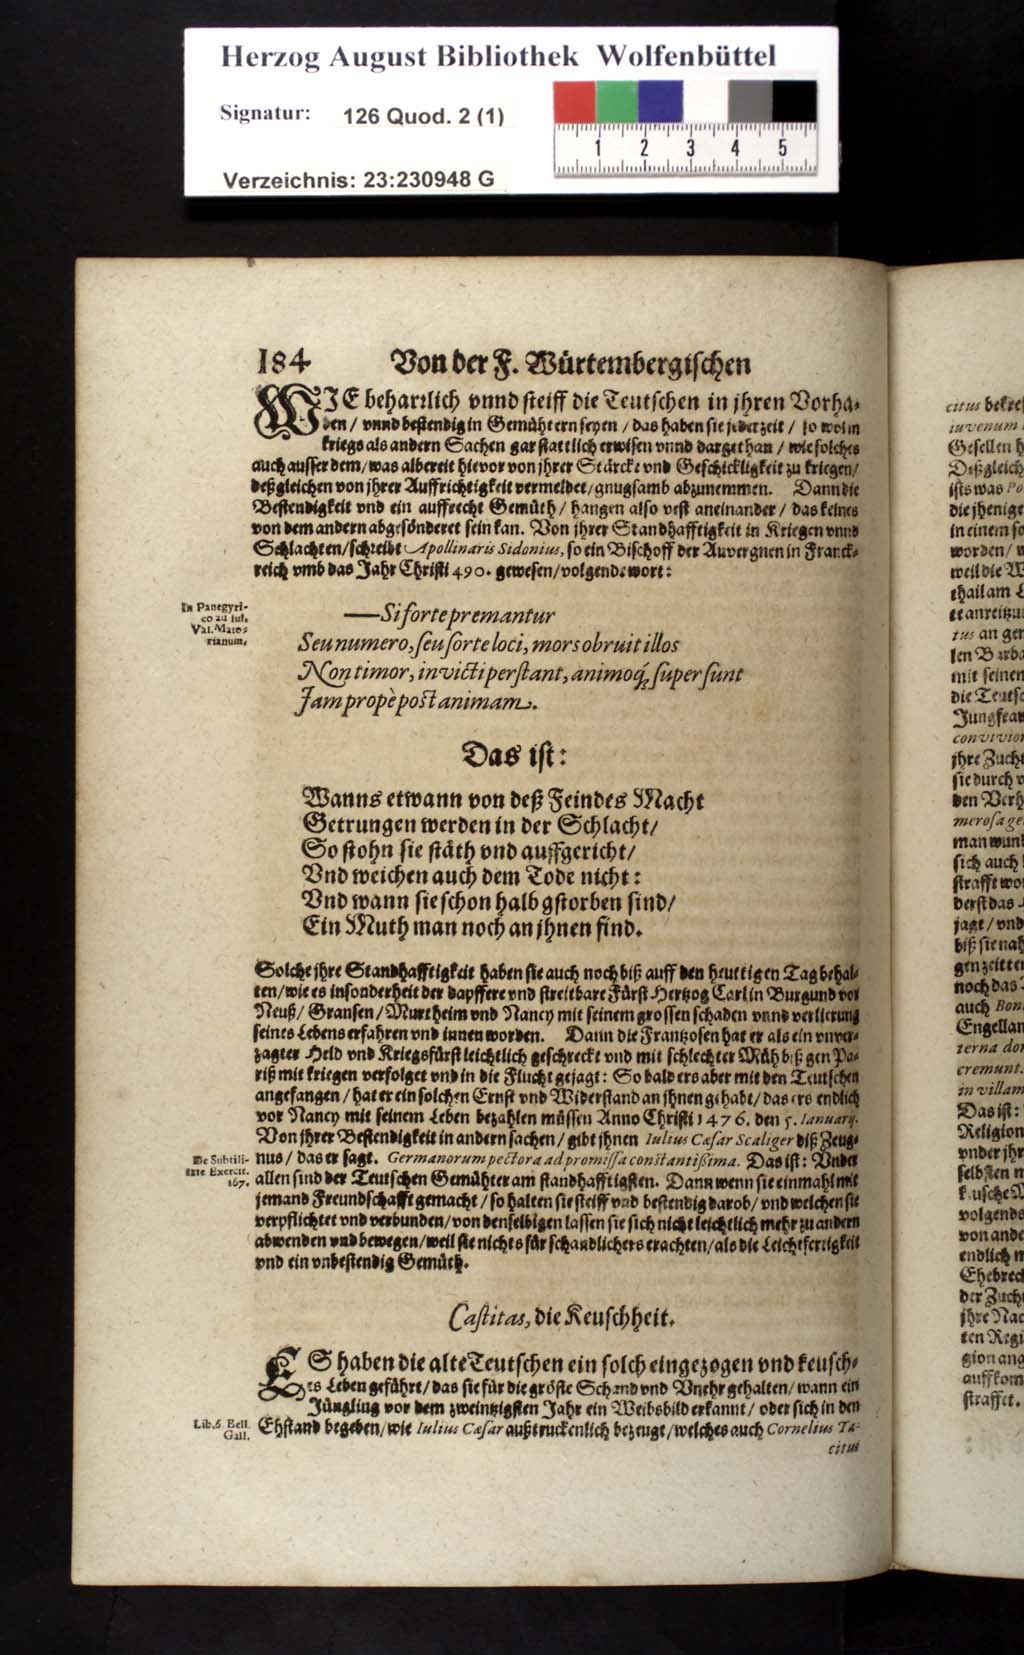 Herzog August Bibliothek Wolfenbüttel
Signatur: 126 Quod. 2 (1)
1 2 3 4 5
Verzeichnis: 23:230948 G
184 Von der F. Würtembergischen
WIE beharrlich vnnd steiff die Teutschen in jhren Vorha-
ben / vnnd bestendig in Gemühtern seyen / das haben sie jederzeit / so wol in
kriegs als andern Sachen gar stattlich erwisen vnnd dargethan / wie solches
auch ausser dem / was albereit hievor von jhrer Stärcke vnd Geschickligkeit zu kriegen /
deßgleichen von jhrer Auffrichtigkeit vermeldet / gnugsamb abzunemmen. Dann die
Bestendigkeit vnd ein auffrecht Gemüth / hangen also vest aneinander / das keines
von dem andern abgesönderet sein kan. Von jhrer Standhafftigkeit in Kriegen vnnd
Schlachten / schreibt Apollinaris Sidonius, so ein Bischoff der Auvergnen in Franck-
reich vmb das Jahr Christi 490. gewesen / volgende wort:
In Panegyri-
co ad Iul.
Val. Maio-
rianum.
—Si forte premantur
Seu numero, seu sorte loci, mors obruit illos
Non timor, invicti perstant, animoq́; supersunt
Jam propè post animam.
Das ist:
Wanns etwann von deß Feindes Macht
Getrungen werden in der Schlacht /
So stohn sie stäth vnd auffgericht /
Vnd weichen auch dem Tode nicht:
Vnd wann sie schon halb gstorben sind /
Ein Muth man noch an jhnen find.
Solche jhre Standhafftigkeit haben sie auch noch biß auff den heuttigen Tag behal-
ten / wie es insonderheit der dapffere vnd streitbare Fürst Hertzog Carl in Burgund vor
Neuß / Gransen / Murtheim vnd Nancy mit seinem grossen schaden vnnd verlierung
seines Lebens erfahren vnd innen worden. Dann die Frantzosen hat er als ein vnver-
zagter Held vnd Kriegsfürst leichtlich geschreckt vnd mit schlechter Müh biß gen Pa-
riß mit kriegen verfolget vnd in die Flucht gejagt: So bald ers aber mit den Teutschen
angefangen / hat er ein solchen Ernst vnd Widerstand an jhnen gehabt / das ers endlich
vor Nancy mit seinem Leben bezahlen müssen Anno Christi 1476. den 5. Ianuarij.
Von jhrer Bestendigkeit in andern sachen / gibt jhnen Iulius Cæsar Scaliger diß Zeug-
nus / das er sagt. Germanorum pectora ad promissa constantißima. Das ist: Vnder
De Subtili-
tate Exercit.
167.
allen sind der Teutschen Gemühter am standhafftigsten. Dann wenn sie einmahl mit
jemand Freundschafft gemacht / so halten sie steiff vnd bestendig darob / vnd welchen sie
verpflichtet vnd verbunden / von denselbigen lassen sie sich nicht leichtlich mehr zu andern
abwenden vnd bewegen / weil sie nichts für schandlichers erachten / als die Leichtfertigkeit
vnd ein vnbestendig Gemüth.
Castitas, die Keuschheit.
ES haben die alte Teutschen ein solch eingezogen vnd keusch-
es Leben geführt / das sie für die gröste Schand vnd Vnehr gehalten / wann ein
Jüngling vor dem zweintzigsten Jahr ein Weibsbild erkannt / oder sich in den
Lib. 6. Bell.
Gall.
Ehstand begeben / wie Iulius Cæsar außtruckenlich bezeugt / welches auch Cornelius Ta-
citus
citus
iuvenum
Gesellen
Deßgleich
ists was
die jhenige
in einem
worden /
weil die
thail am
an
mit seinen
die
jhre Zucht
sie durch
den
man
sich auch
strafft
derst das
jagt / vnd
biß sie
noch das
auch Bon
Engellan
terna
cremunt.
in villam
Das ist:
Religion
vnder jhr
keusche
volgends
von ande
endlich
Ehebrech
der Zucht
gion
auffkom
straffet.